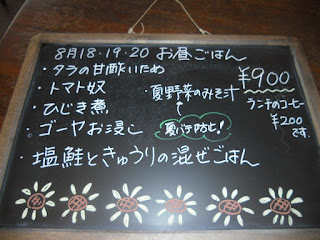 8月18・19・20 お昼ごはん
・タラの甘酢いため
・トマト奴
・ひじき煮
・ゴーヤお浸し
・塩鮭ときゅうりの混ぜごはん
・夏野菜のみそ汁
夏バテ防止!
¥900
ランチのコーヒー
¥200
です.